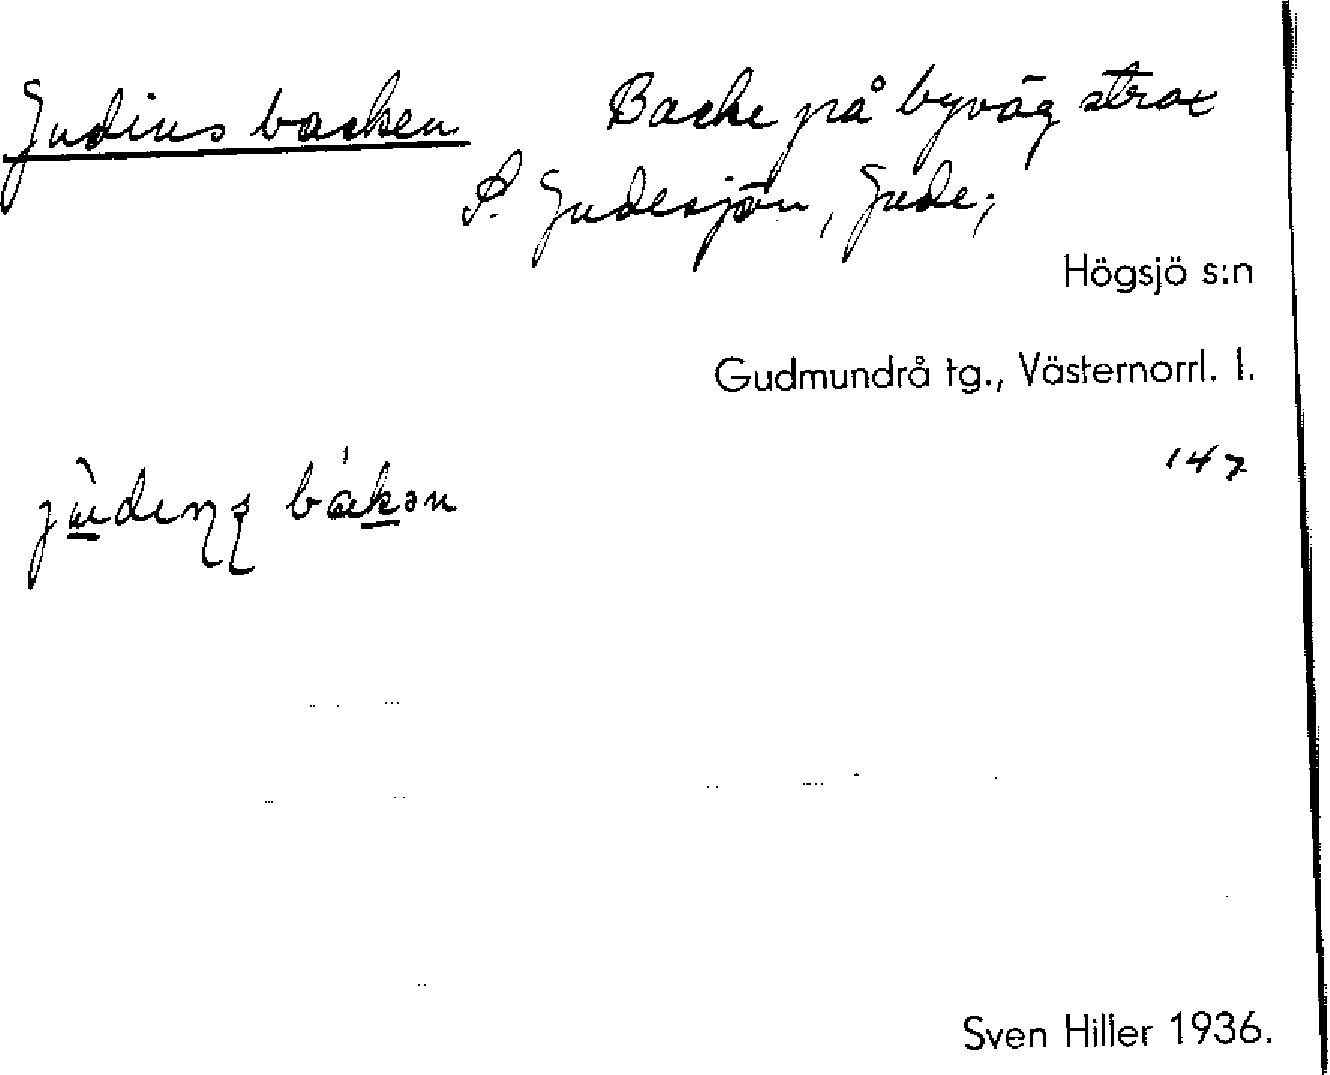 Judins backen Backe på byväg strax
S. Judesjön, Jude;
Högsjö s:n
Gudmundrå tg., Västernorrl. l.
147
bakən
Sven Hiller 1936.